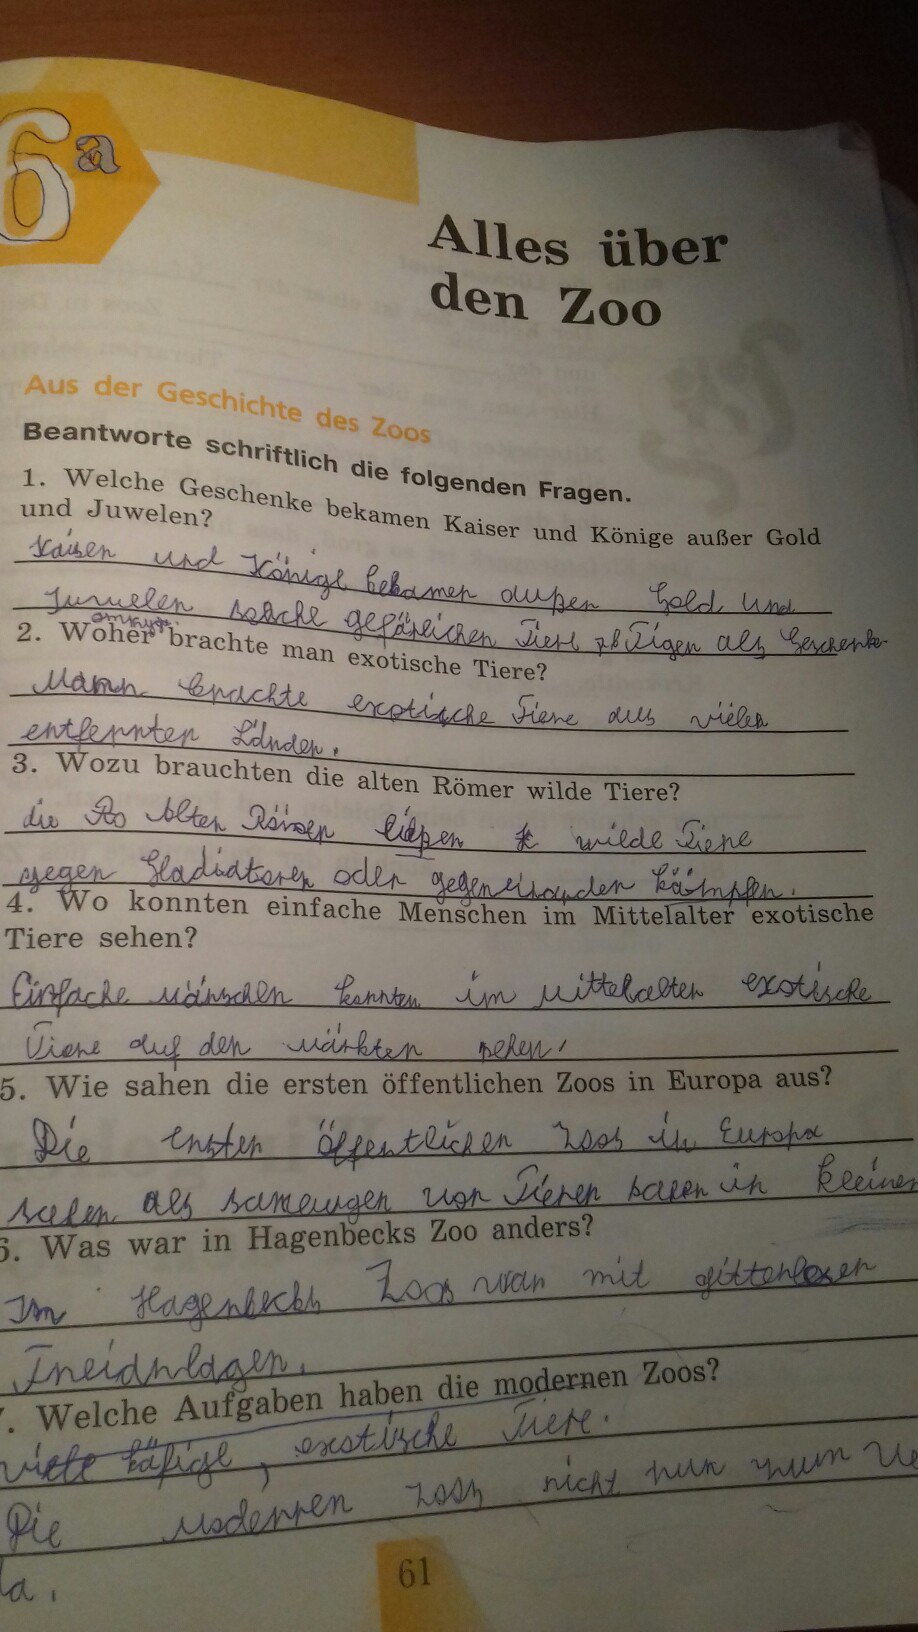 6a
Alles über
den Zoo
Aus der Geschichte des Zoos
Beantworte schriftlich die folgenden Fragen.
1. Welche Geschenke bekamen Kaiser und Könige außer Gold
und Juwelen?
Kaisen und Könige bekamen außen Gold und
Juwelen solche gefärlichen Tiere Tigen als Geschenke
2. Woher brachte man exotische Tiere?
Mann brachte exotische Tiere aus vielen
entfernten Länden.
3. Wozu brauchten die alten Römer wilde Tiere?
die Alten Römer ließen wilde Tiere
gegen Gladiatoren oder gegeneinander kämpfen.
4. Wo konnten einfache Menschen im Mittelalter exotische
Tiere sehen?
Einfache Mänschen konnten im Mittelalter exotische
Tiere auf den Märkten sehen.
5. Wie sahen die ersten öffentlichen Zoos in Europa aus?
Die ersten öffentlichen Zoos in Europa
sahen als von Tieren in kleinen
6. Was war in Hagenbecks Zoo anders?
Im Hagenbecks Zoos war mit gittenlosen
Freianlagen.
7. Welche Aufgaben haben die modernen Zoos?
viele käfige, exotische Tiere.
Die modernen Zoos nicht nur zum
61